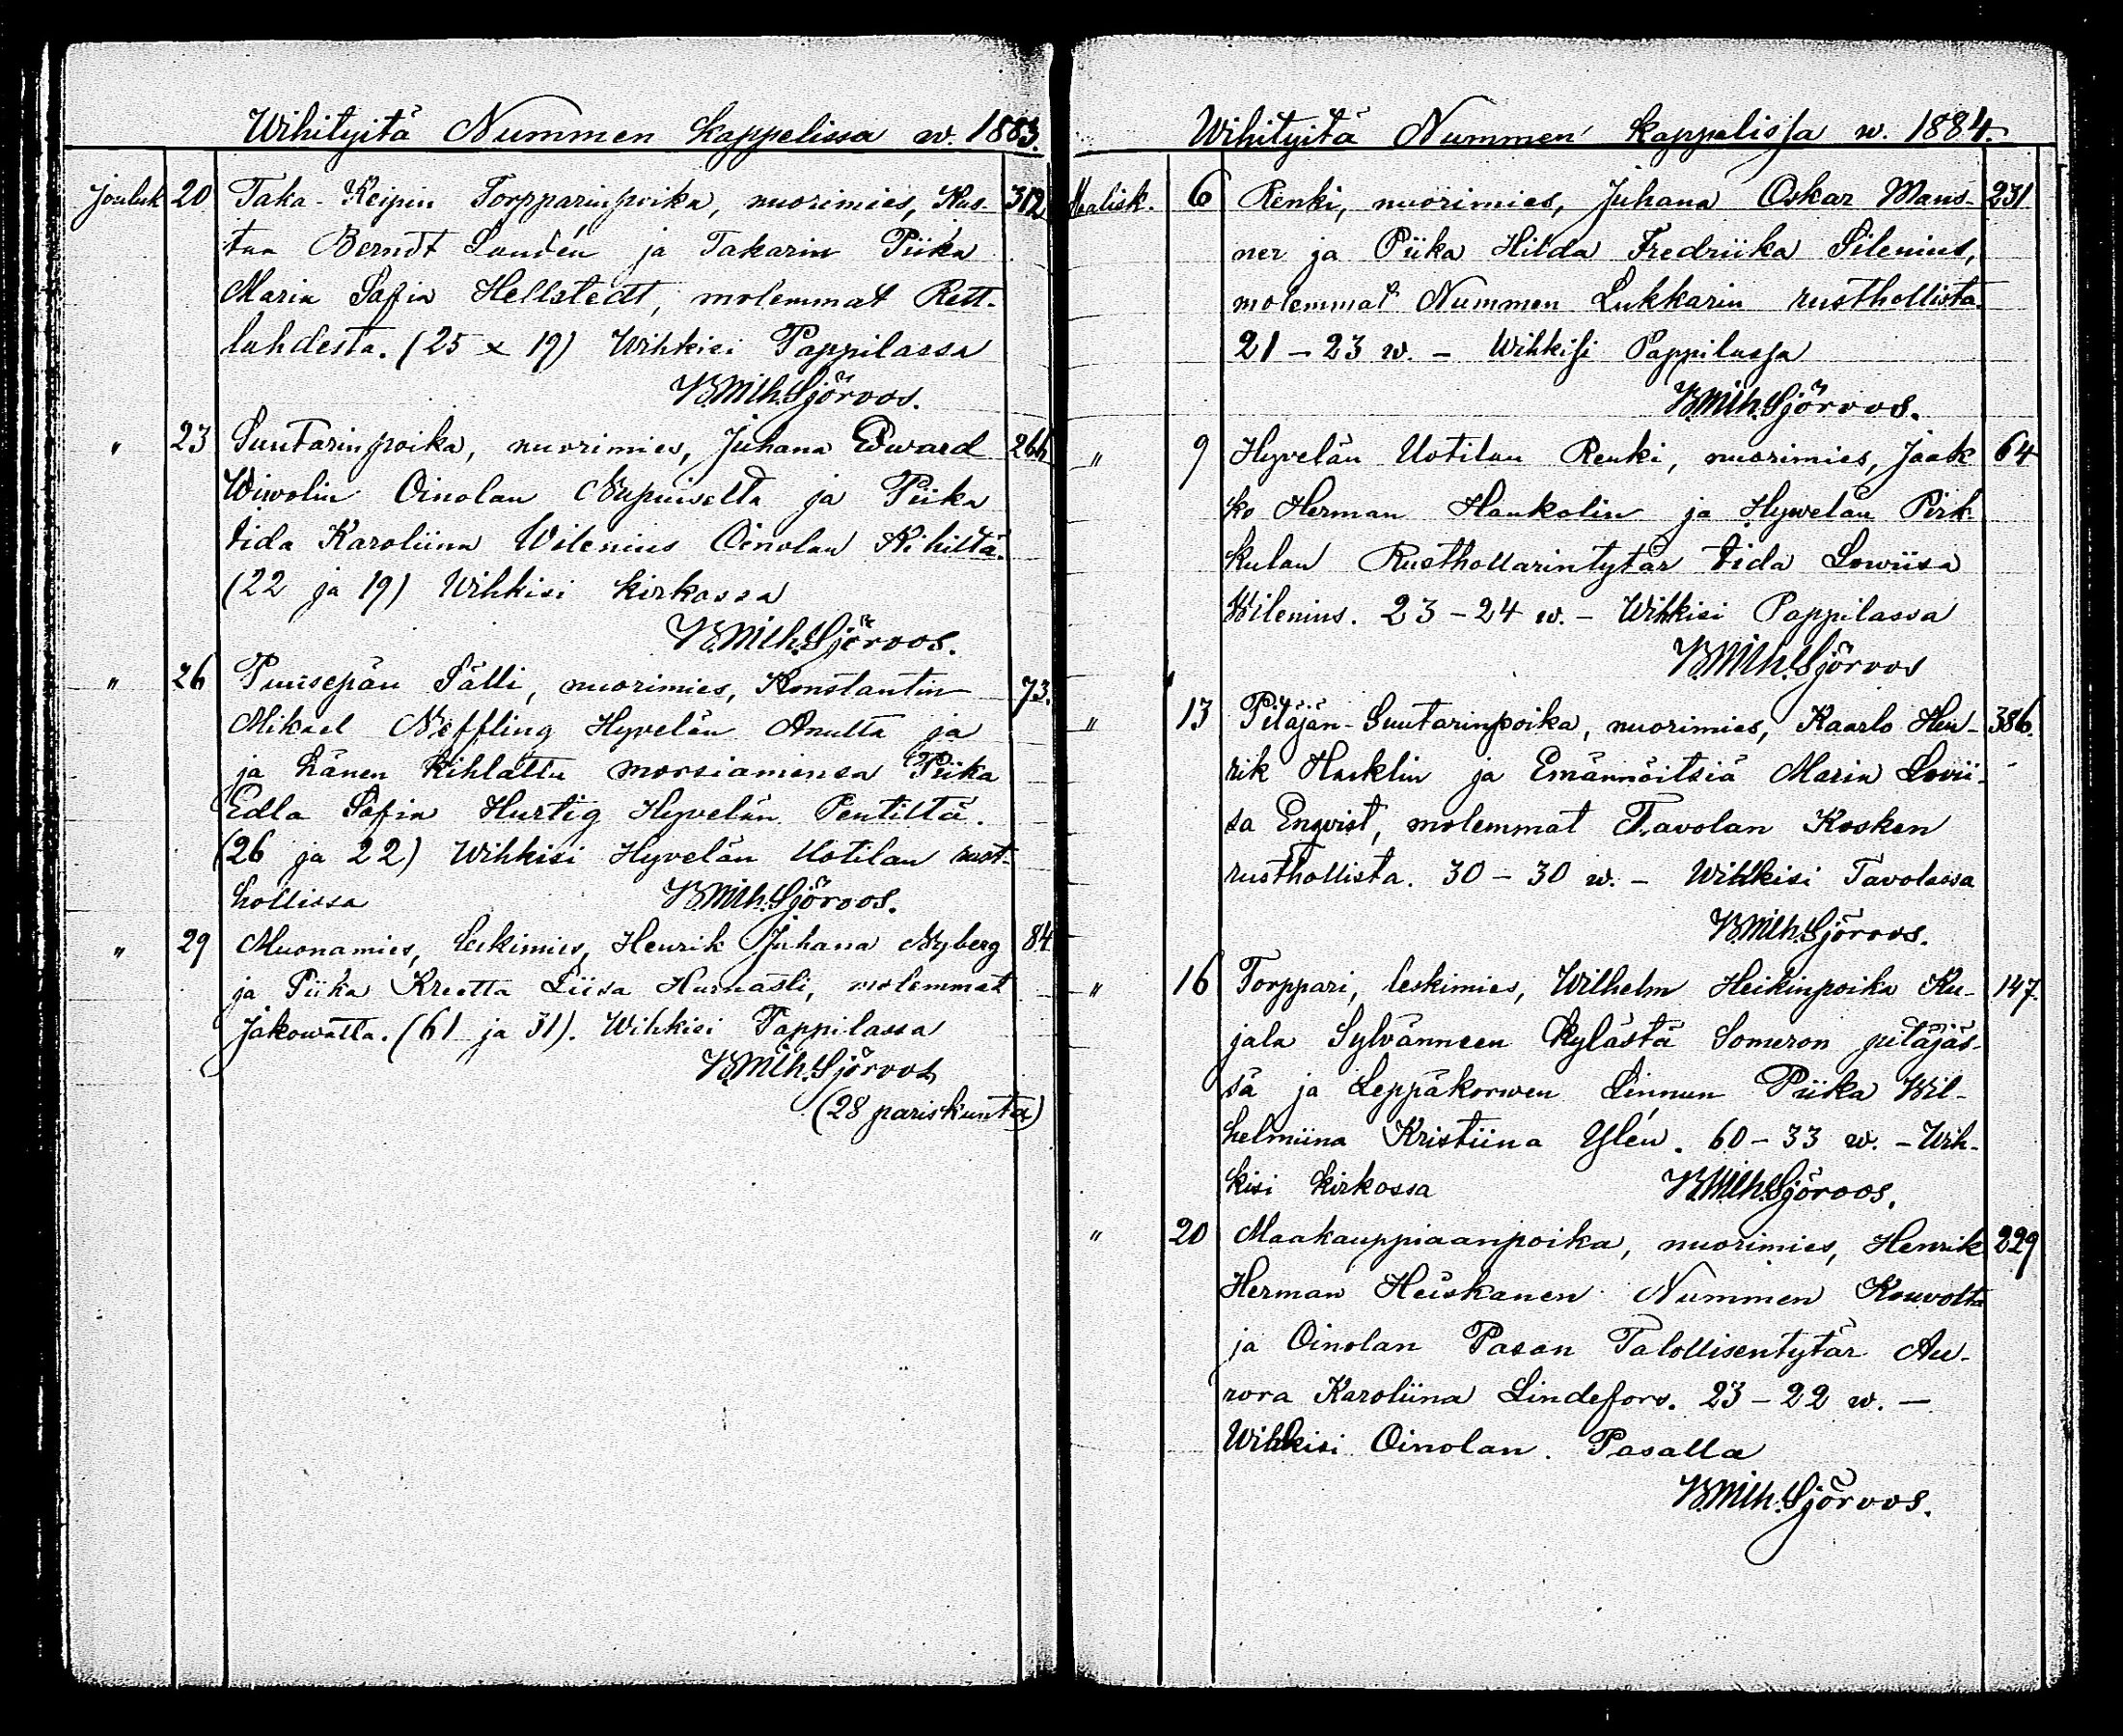 Wihityitä Nummen kappelissa w. 1883.
Jouluk 20 Taka-Keipin Torpparinpoika, nuorimies, Kus- 312
taa Berndt Lundén ja Takarin Piika
Maria Sofia Hellstedt, molemmat Rett-
lahdesta. (25 x 19) Wihkisi Pappilassa
K.Wilh.Sjöroos.
" 23 Suutarinpoika, nuorimies, Juhana Edward 266
Wiwolin Oinolan ja Piika
Iida Karoliina Wilenius Oinolan Kihiltä.
(22 ja 19) Wihkisi kirkossa
K.Wilh.Sjöroos.
" 26 Puusepän Sälli, nuorimies, Konstantin 73.
Mikael Neffling Hyvelän Anulta ja
ja hänen kihlattu morsiamensa Piika
Edla Sofia Hurtig Hyvelän Pentiltä.
(26 ja 22) Wihkisi Hyvelän Uotilan rust-
hollissa K.Wilh.Sjöroos.
" 29 Muonamies, leskimies, Henrik Juhana Nyberg 84
ja Piika Kreetta Liisa Hurnasti, molemmat
Jakowalta. (61 ja 31). Wihkisi Pappilassa
K.Wilh.Sjöroos
(28 pariskunta)
Wihityitä Nummen kappelissa w. 1884.
Maalisk. 6 Renki, nuorimies, Juhana Oskar Mans- 231
ner ja Piika Hilda Fredriika Silenius,
molemmat Nummen Lukkarin rusthollista.
21 - 23 w. - Wihkisi Pappilassa
K.Wilh.Sjöroos.
" 9 Hyvelän Uotilan Renki, nuorimies, Jaak 64
ko Herman Haukolin ja Hywelän Pirk-
kulan Rusthollarintytär Iida Lowiisa
Wilenius. 23 - 24 w. - Wihkisi Pappilassa
K.Wilh.Sjöroos
" 13 Pitäjän-Suutarinpoika, nuorimies, Kaarlo Hen- 386.
rik Hacklin ja Emännöitsiä Maria Lovii-
sa Enqvist, molemmat Tavolan Kosken
rusthollista. 30 - 30 w. - Wihkisi Tavolassa
K.Wilh.Sjöroos.
" 16 Torppari, leskimies, Wilhelm Heikinpoika Ku- 147.
jala Sylvänneen Kylästä Someron pitäjäs-
sä ja Leppäkorwen Linnun Piika Wil-
helmiina Kristiina Ylén. 60 - 33 w. - Wih-
kisi kirkossa K.Wilh.Sjöroos.
" 20 Maakauppiaanpoika, nuorimies, Henrik 229
Herman Heiskanen Nummen Kouvolta
ja Oinolan Pasan Talollisentytär Au-
rora Karoliina Lindefors. 23 - 22 w. -
Wihkisi Oinolan Pasalla
K.Wilh.Sjöroos.